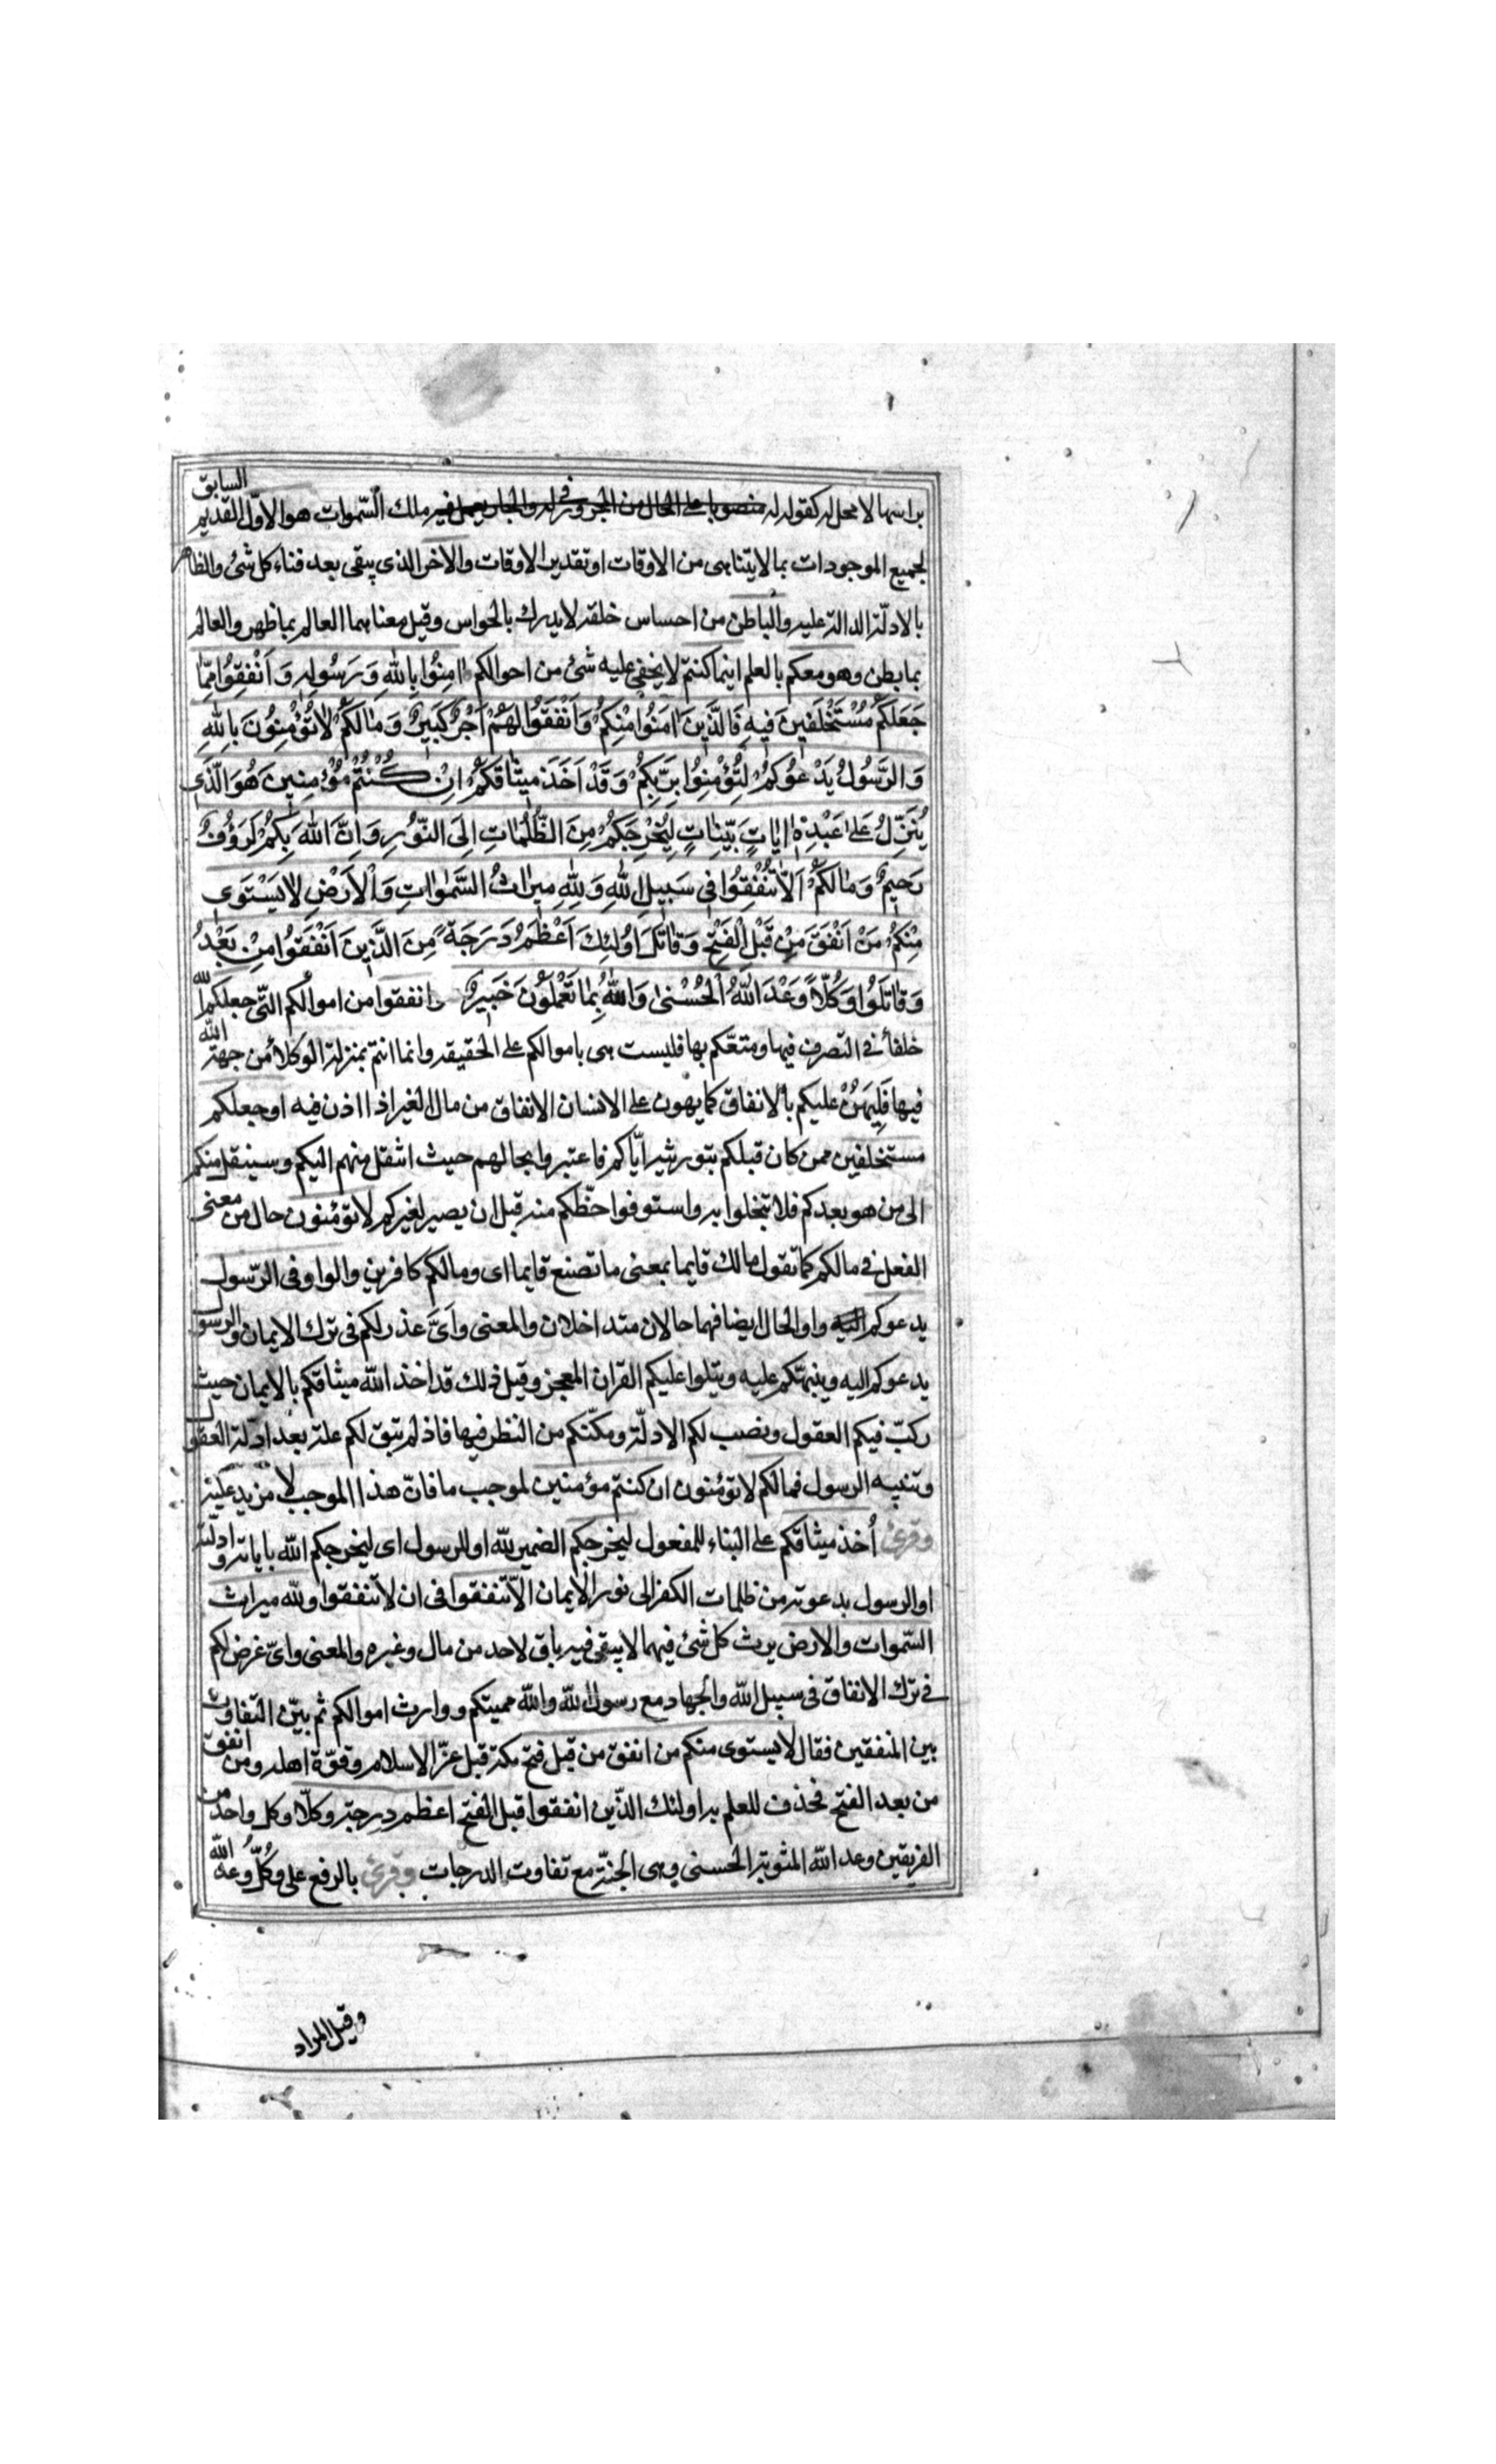 براسها لا محل له كقوله له منصوبا على الحال من المجرور في له والجار يعمل فيه ملك السّموات هو الاوّل القديم السابق
لجميع الموجودات بما لا يتناهى من الاوقات او تقدير الاوقات والاخر الذي يبقى بعد فناء كل شئ والظاهر
بالادلّة الدالة عليه والباطن من احساس خلقه لا يدرك بالحواس وقيل معناهما العالم بما ظهر والعالم
بما بطن وهو معكم بالعلم اينما كنتم لا يخفى عليه شئ من احوالكم اٰمِنُوا بِاللهِ وَرَسُولِهِ وَاَنْفِقُوا مِمّٰا
جَعَلَكُمْ مُسْتَخْلَفينَ فيهِ فَالَّذينَ اٰمَنُوا مِنْكُمْ وَاَنْفَقُوا لَهُمْ اَجْرٌ كَبيرٌ وَمٰا لَكُمْ لاٰ تُؤْمِنُونَ بِاللهِ
وَالرَّسُولُ يَدْعُوكُمْ لِتُؤْمِنُوا بِرَبِّكُمْ وَقَدْ اَخَذَ ميثٰاقَكُمْ اِنْ كُنْتُمْ مُؤْمِنينَ هُوَ الَّذي
يُنَزِّلُ عَلىٰ عَبْدِهٖ اٰيٰاتٍ بَيِّنٰاتٍ لِيُخْرِجَكُمْ مِنَ الظُّلُمٰاتِ اِلَى النُّورِ وَاِنَّ اللهَ بِكُمْ لَرَؤُفٌ
رَحيمٌ وَمٰا لَكُمْ اَلاّٰ تُنْفِقُوا في سَبيلِ اللهِ وَلِلّٰهِ ميراثُ السَّمٰوٰاتِ وَالْاَرْضِ لاٰ يَسْتَوي
مِنْكُمْ مَنْ اَنْفَقَ مِنْ قَبْلِ الْفَتْحِ وَقٰاتَلَ اُولٰئِكَ اَعْظَمُ دَرَجَةً مِنَ الَّذينَ اَنْفَقُوا مِنْ بَعْدُ
وَقٰاتَلُوا وَكُلّاً وَعَدَ اللهُ الْحُسْنىٰ وَاللهُ بِمٰا تَعْمَلُونَ خَبيرٌ وانفقوا من اموالكم التّي جعلكم الله
خلفأ في التصرف فيها ومتعّكم بها فليست هي باموالكم على الحقيقه وانما انتم بمنزلة الوكلاء من جهة الله
فيها فَلِيَهُنْ عليكم بالانفاق كما يهون على الانسان الانفاق من مال الغير اذا اذن فيه او جعلكم
مستخلفين ممن كان قبلكم بتوريثه ايّاكم فاعتبروا بحالهم حيث انتقل منهم اليكم وسينتقل منكم
الى من هو بعدكم فلا تبخلوا به واستوفوا حظّكم منه قبل ان يصير لغيركم لا تؤمنون حال من معنى
الفعل في مالكم كما تقول مالك قايما بمعنى ما تصنع قايما اى ومالكم كافرين والواو في الرّسول
يدعوكم واو الحال ايضا فهما حالان متداخلان والمعنى واَىّ عذر لكم في ترك الايمان والرسول
يدعوكم اليه وينبهّكم عليه ويتلوا عليكم القران المعجز وقيل ذلك قد اخذ الله ميثاقكم بالايمان حيث
ركبّ فيكم العقول ونصب لكم الادلّة ومكّنكم من النظر فيها فاذ لم تبق لكم علة بعد ادلّة العقول
وتنبيه الرسول فمالكم لا تؤمنون ان كنتم مؤمنين لموجب ما فانّ هذا الموجب لا مزيد عليه
وقرئ أُخذ ميثاقكم على البناء للمفعول ليخرجكم الضمير للّه او للرسول اى ليخرجكم الله باياته وادلّته
او الرسول بدعوته من ظلمات الكفر الى نور الايمان الاّ تنفقوا في ان لا تنفقوا وللّه ميراث
السّموات والارض يرث كل شئ فيهما لا يبقى فيه باق لاحد من مال وغيره والمعنى واىّ غرض لكم
في ترك الانفاق في سبيل الله والجهاد مع رسول الله والله مميتكم ووارث اموالكم ثم بيّن التفاوت
بين المنفقين فقال لا يستوى منكم من انفق من قبل فتح مكة قبل عزّ الاسلام وقوّة اهله ومن انفق
من بعد الفتح فحذف للعلم به اولئك الذّين انفقوا قبل الفتح اعظم درجة وكلّا وكل واحد من
الفريقين وعد الله المثوبة الحسنى وهى الجنّة مع تفاوت الدرجات وقرئ بالرفع على وكُلٌّ وعدهُ الله
وقيل المراد